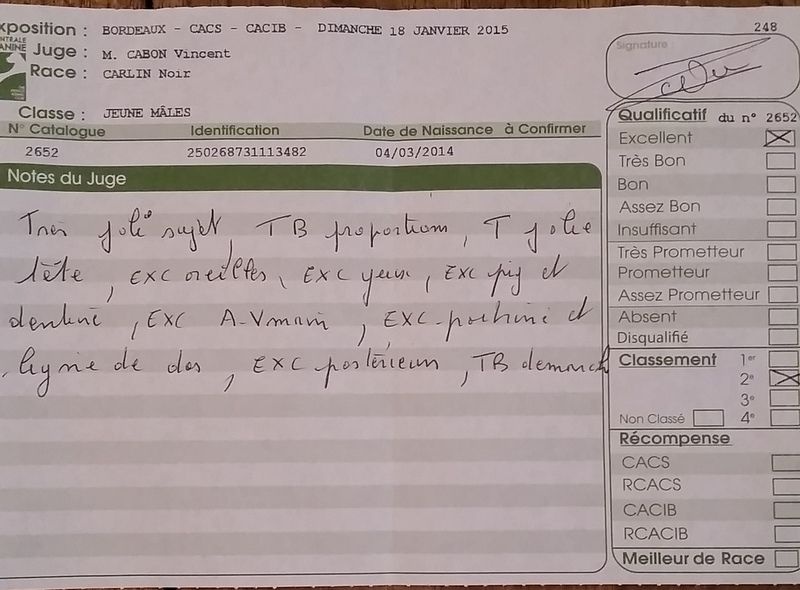 xposition : BORDEAUX - CACS - CACIB - DIMANCHE 18 JANVIER 2015
248
NTRALE
ANINE
Juge : M. CABON Vincent
Race : CARLIN Noir
Classe : JEUNE MÂLES
N° Catalogue Identification Date de Naissance à Confirmer
2652 250268731113482 04/03/2014
Notes du Juge
Très joli sujet, TB proportions, T jolie
tête, EXC oreilles, EXC yeux, EXC pig et
dentine, EXC A-Vmain, EXC poitrine et
ligne de dos, EXC postérieurs, TB démarch
Signature :
Qualificatif du n° 2652
Excellent
Très Bon
Bon
Assez Bon
Insuffisant
Très Prometteur
Prometteur
Assez Prometteur
Absent
Disqualifié
Classement 1er
2e
3e
Non Classé 4e
Récompense
CACS
RCACS
CACIB
RCACIB
Meilleur de Race